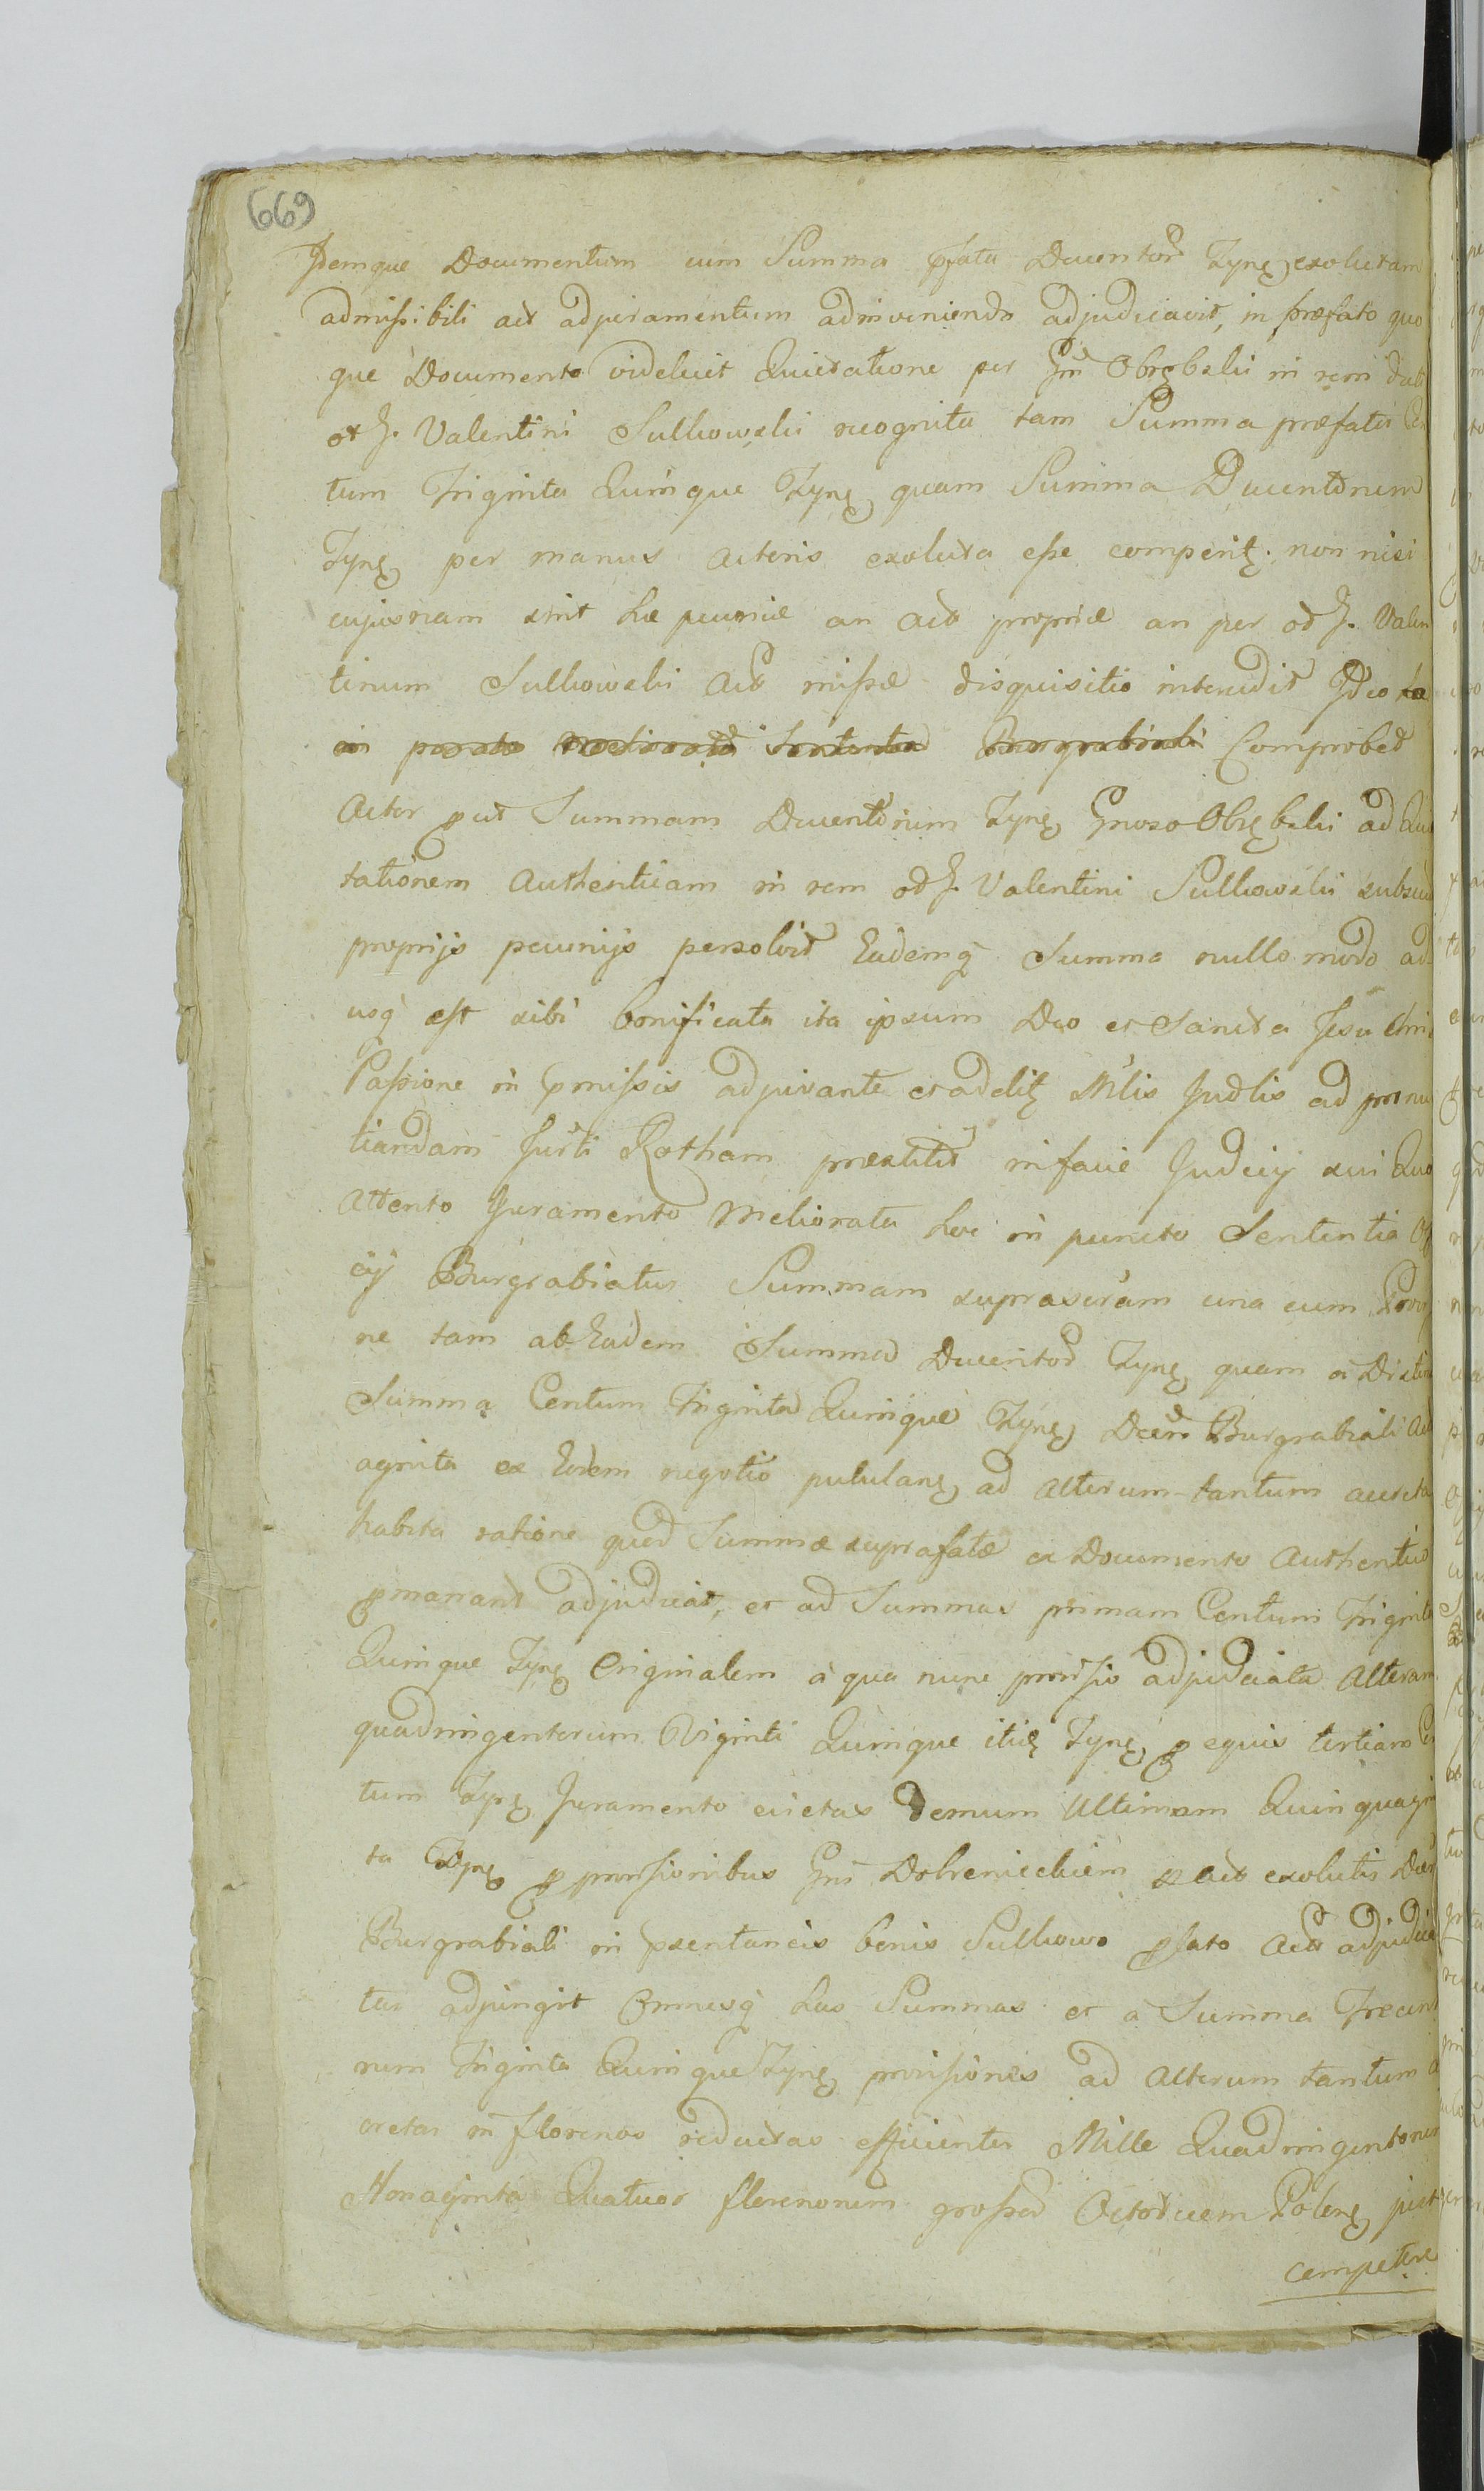 669
Idemque Documentum cum Summa pfata Ducentor Tynę, exolutam
admissibili act adjuramentum adinveniendo adjudicavit, in præfato quo
que Documento videlicet Quietatione per Gm Obrębski in rem dati
oł J. Valentini Sulkowski recognita tam Summa præfata Cen
tum Triginta Quinque Tynę, quam Summa Ducentorum
Tynę, per manus Actoris exoluta esse comperitę. non nisi
cujusnam sint hæ pecuniæ an act propriæ an per oł J. Valen
tinum Sulkowski Act missæ disquisitio intercedit Ideo
Comprobet
Actor put Summam Ducentorum Tynę Gnroso Obrębski ad Quie
tationem Authenticam in rem oł J. Valentini Sulkowski subsecu
proprijs pecunijs persolvit Eademq Summa nullo modo ad
usq est sibi bonificata ita ipsum Deo et Sancta Jesu Chri
Passione in pmissis adjuvante et Mlis Judlis ad pronun
tiandam Jurti Rotham præstitit infacie Judcij sui Quo
Attento Juramento Meliorata hoc in puncto Sententia Of
cij Burgrabiatus Summam suprascram una cum Provi
ne tam ab Eadem Summa Ducentor Tynę quam a Distin
Summa Centum Triginta Quinque Tynę, Dcero Burgrabiali Act
agnita ex Eodem negotio pululanę ad Alterum tantum accreta
habita ratione quod Summæ suprafatæ ex Documento Authentico
pmanant adjudicat, et ad Summas primam Centum Triginta
Quinque Tynę Originalem a qua nunc provisio adjudicata Alteram
quadringentorum Viginti Quinque itię Tynę, p equis tertiam Cen
tum Tynę Juramento evictas Demum Ultimam Quinquagin
ta Tynę p provisionibus Gni p act exolutis Dcer
Burgrabiali in psentaneis bonis Sulkowo pfato Act adjudica
tas adjungit Omnesq has Summas et a Summa Trecen
rum Triginta Quinque Tynę provisiones ad Alterum tantum a
cretas in florenos reductas efficientes Mille Quadringentorum
Nonaginta Quatuor florenorum grossos Octodecem Polonę, just
competere